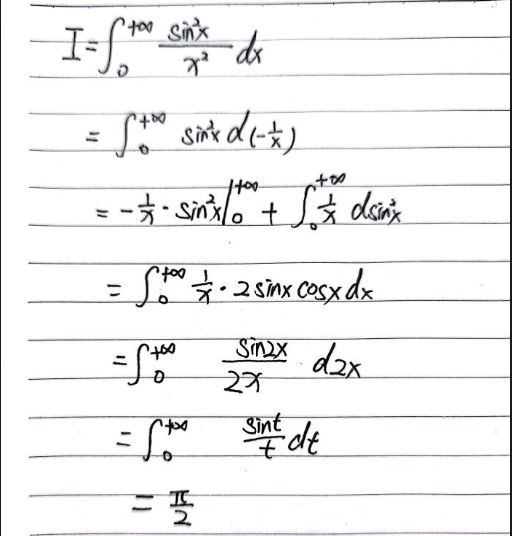 I = ∫₀^{+∞} \frac{sin²x}{x²} dx
= ∫₀^{+∞} sin²x d(-\frac{1}{x})
= -\frac{1}{x} · sin²x |₀^{+∞} + ∫₀^{+∞} \frac{1}{x} dsin²x
= ∫₀^{+∞} \frac{1}{x} · 2 sinx cosx dx
= ∫₀^{+∞} \frac{sin2x}{2x} d2x
= ∫₀^{+∞} \frac{sint}{t} dt
= \frac{π}{2}